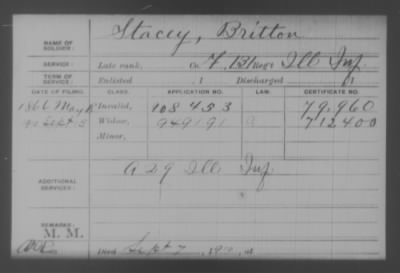 NAME OF SOLDIER: Stacey, Britton
SERVICE: Late rank, Co. F, 131 Reg't Ill Inf.
TERM OF SERVICE: Enlisted , 1 Discharged , 1
DATE OF FILING. CLASS. APPLICATION NO. LAW. CERTIFICATE NO.
1866 May Invalid, 108433 79.960
90 Sept 3 Widow, 949191 712400
Minor,
ADDITIONAL SERVICES: A 29 Ill Inf
REMARKS:
M. M.
Died Sept 7, 19 , at